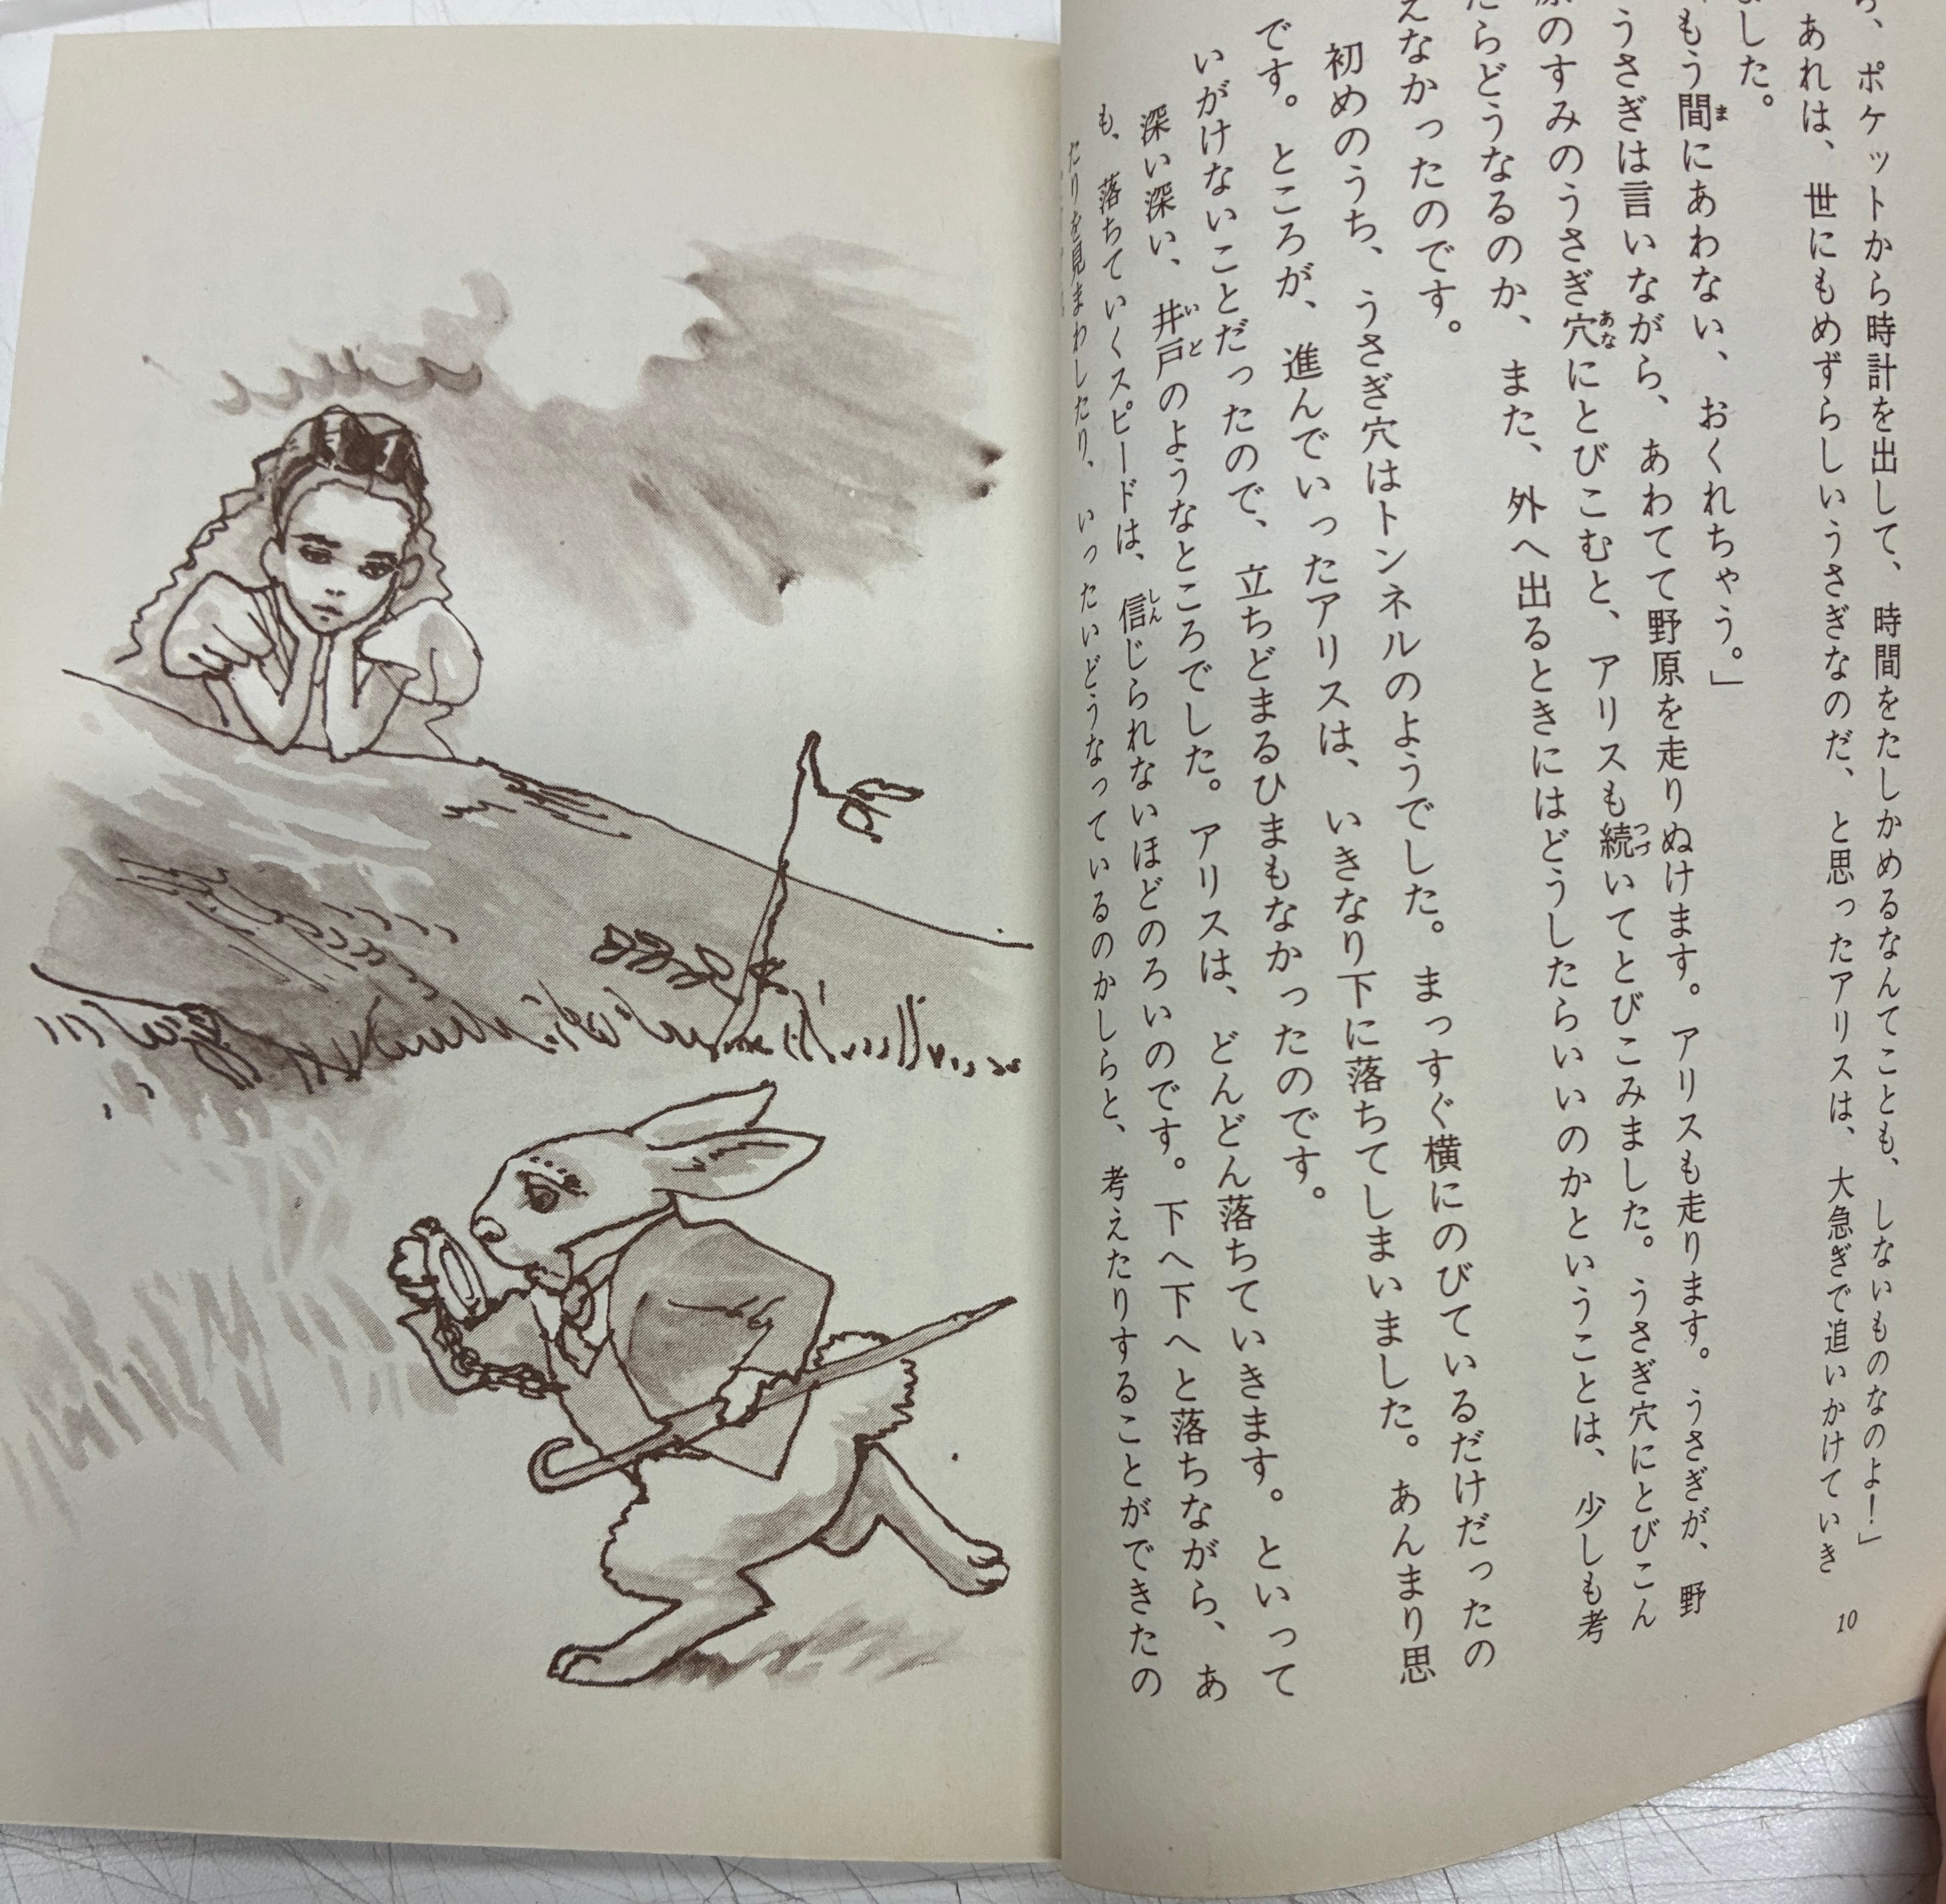 ら、ポケットから時計を出して、時間をたしかめるなんてことも、しないものなのよ！」
あれは、世にもめずらしいうさぎなのだ、と思ったアリスは、大急ぎで追いかけていき
ました。
もう間にあわない、おくれちゃう。」
うさぎは言いながら、あわてて野原を走りぬけます。アリスも走ります。うさぎが、野
原のすみのうさぎ穴にとびこむと、アリスも続いてとびこみました。うさぎ穴にとびこん
だらどうなるのか、また、外へ出るときにはどうしたらいいのかということは、少しも考
えなかったのです。
初めのうち、うさぎ穴はトンネルのようでした。まっすぐ横にのびているだけだったの
です。ところが、進んでいったアリスは、いきなり下に落ちてしまいました。あんまり思
いがけないことだったので、立ちどまるひまもなかったのです。
深い深い、井戸のようなところでした。アリスは、どんどん落ちていきます。といって
も、落ちていくスピードは、信じられないほどのろいのです。下へ下へと落ちながら、あ
たりを見まわしたり、いったいどうなっているのかしらと、考えたりすることができたの
10